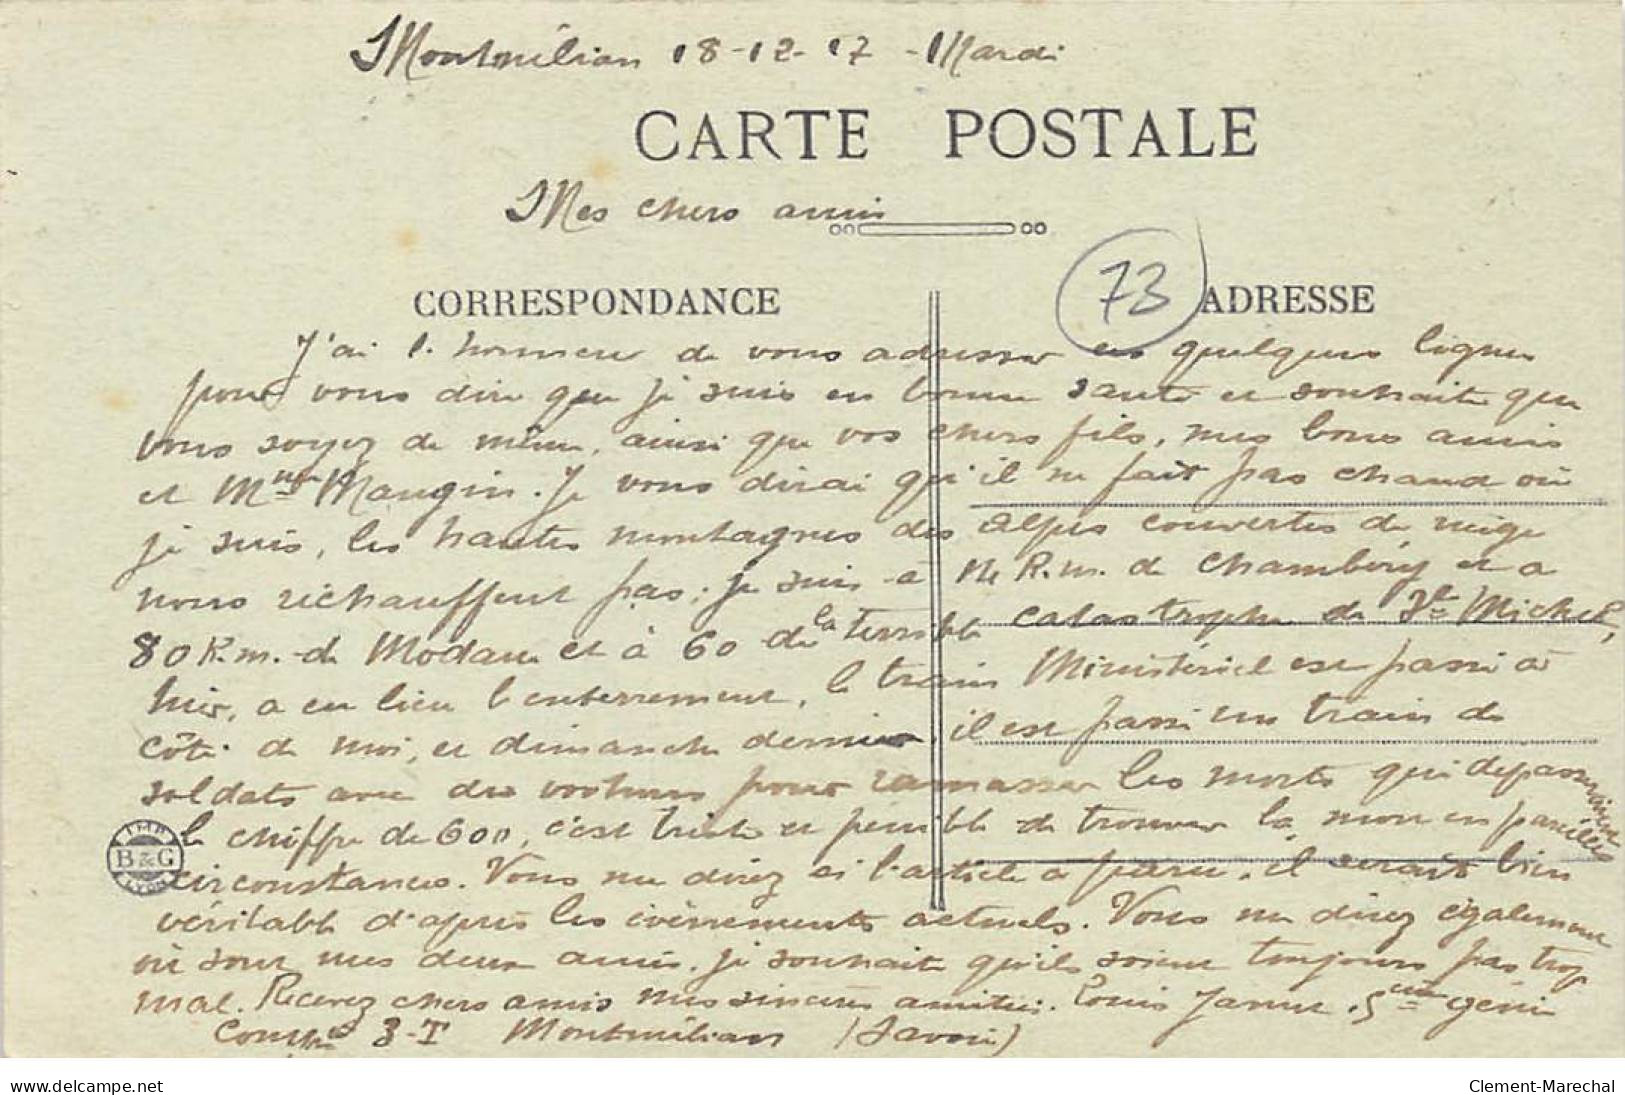 Montmélian 18-12-17 - Mardi
CARTE POSTALE
Mes chers amis
73
CORRESPONDANCE
ADRESSE
J'ai l'honneur de vous adresser ces quelques lignes
pour vous dire que je suis en bonne santé et souhaite que
vous soyez de même, ainsi que vos chers fils, mes bons amis
et Mme Maugin. Je vous dirai qu'il ne fait pas chaud où
je suis, les hautes montagnes des Alpes couvertes de neige
nous réchauffent pas; je suis à 14 K.m. de Chambéry et à
80 K.m. de Modane et à 60 de la terrible catastrophe de St Michel,
hier, a eu lieu l'enterrement, le train Ministériel est passé à
côté de moi, et dimanche dernier, il est passé un train de
soldats avec des voitures pour ramasser les morts qui dépassaient
le chiffre de 600, c'est triste et pénible de trouver la mort en pareilles
circonstances. Vous me direz si l'article a paru, il serait bien
véritable d'après les évènements actuels. Vous me direz également
où sont mes deux amis, je souhaite qu'ils soient toujours pas trop
mal. Recevez chers amis mes sincères amitiés. Louis 5me génie
Compie 3-T Montmélian (Savoie)
IMP.
B & G
LYON
www.delcampe.net
Clement-Marechal